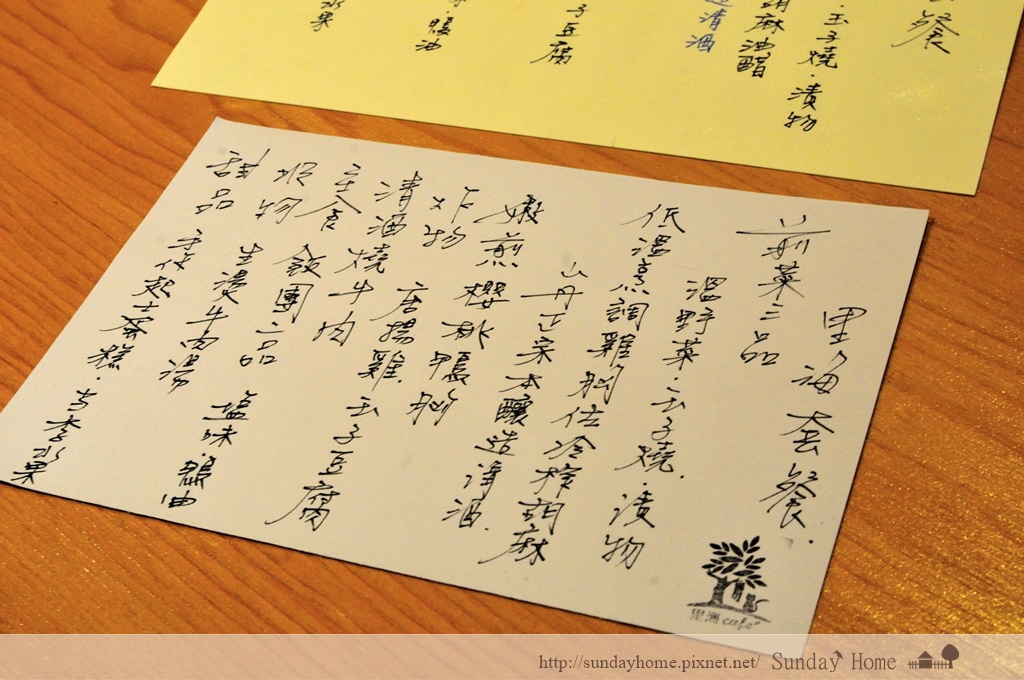 套餐
玉子燒.漬物
胡麻油醋
造清酒
子豆腐
味.鴨油
水果
里海套餐.
前菜三品
溫野菜.玉子燒.漬物
低溫烹調雞胸佐冷榨胡麻
山丹正宗本釀造清酒.
嫩煎櫻桃鴨胸
炸物 唐揚雞.玉子豆腐
清酒燒牛肉
主食 飯團二品 塩味.鴨油
椀物 生燙牛肉湯
甜品 手作起士蛋糕.当季水果
里海café
http://sundayhome.pixnet.net/
Sunday Home